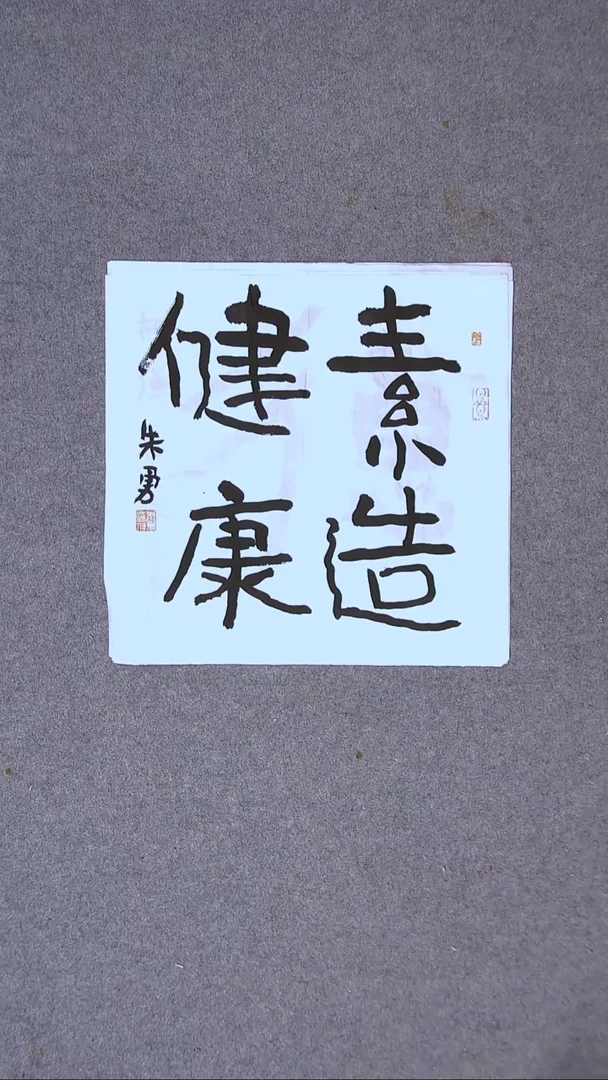 素造
健康
朱勇